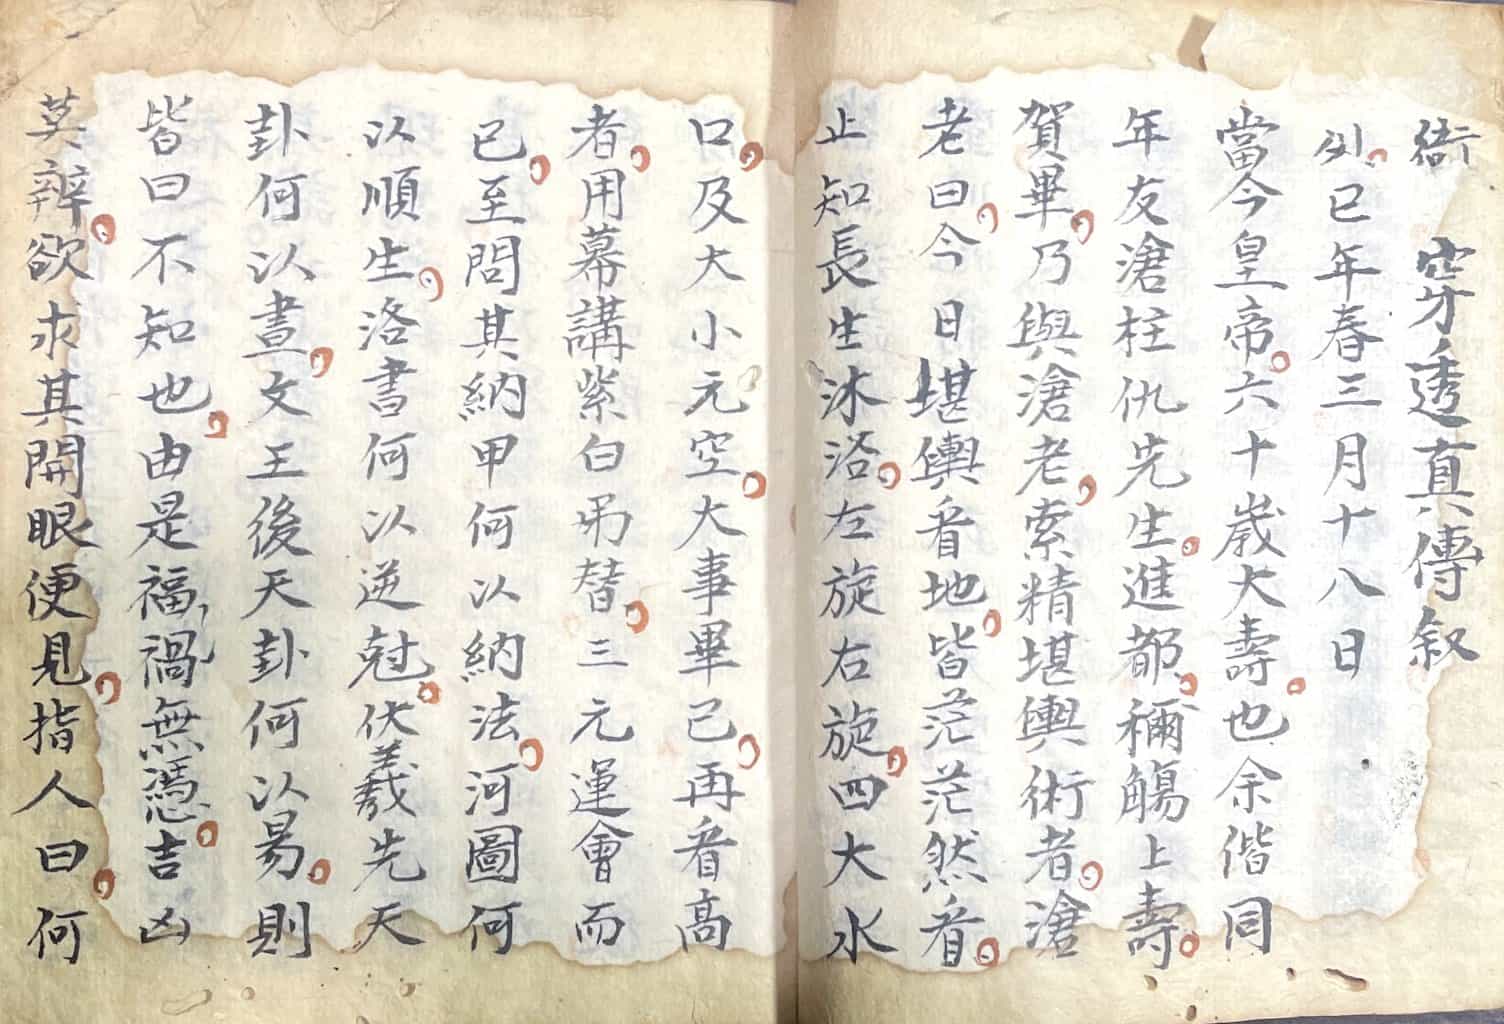 衒　穿透真傳叙
巳年春三月十八日
當今皇帝六十歲大壽也余偕同
年友滄柱仇先生進都稱觴上壽
賀畢乃與滄老索精堪輿術者滄
老曰今日堪輿看地皆茫茫然看
止知長生沐浴左旋右旋四大水
口及大小元空大事畢已再看高
者用幕講紫白吊替三元運會而
已至問其納甲何以納法河圖何
以順生洛書何以逆尅伏羲先天
卦何以畫文王後天卦何以易則
皆曰不知也由是福禍無憑吉凶
莫辨欲求其開眼便見指人曰何